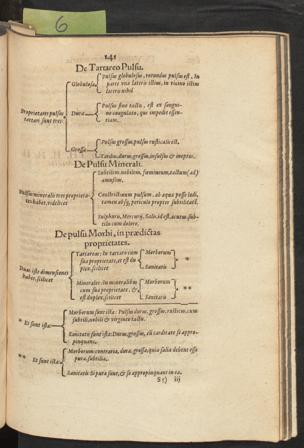 6
141
De Tartareo Pulsu.
Proprietates pulsus
tartari sunt tres
Globulosa,
Pulsus globulosus, rotundus pulsus est. In
parte una lateris illius, in viarum illius
latere nihil
Dura
Pulsus sine tactu, est ex sangui-
ne coagulato, qui impedit essen-
tiam.
Grossa
Pulsus grossus, pulsus rusticalis est.
Tardus, durus, grossus, insulsus & ineptus.
De Pulsu Minerali.
Pulsus mineralis tres proprieta-
tes habet, videlicet
Subtilem, nobilem, fœmineum, tactum[ad]
amussim.
Constrictivum pulsum, ab aqua posse ludi,
tamen absq; periculo propter subtilitatē.
Sulphuris, Mercurij, Salis. id est, acutus sub-
tilis cum dolore.
De pulsu Morbi, in prædictas
proprietates.
Duas iste dimensiones
habet, scilicet
Tartareus: In tartaro cum
sua proprietate, et est du-
plex, scilicet
Morborum
Sanitatis
*
Mineralis: In mineralibus
cum sua proprietate, &
est duplex, scilicet
Morborum
Sanitatis
**
* Et sunt ista:
Morborum sunt ista: Pulsus durus, grossus, rusticus, cum
subtili, nobili & virgineo tactu.
Sanitatis sunt ista: Durus, grossus, cū tarditate se appro-
pinquans.
** Et sunt ista:
Morborum contraria, dura, grossa, quia salia debent esse
pura, subtilia.
Sanitatis si pura sunt, & se appropinquant in ea.
S 5) iij